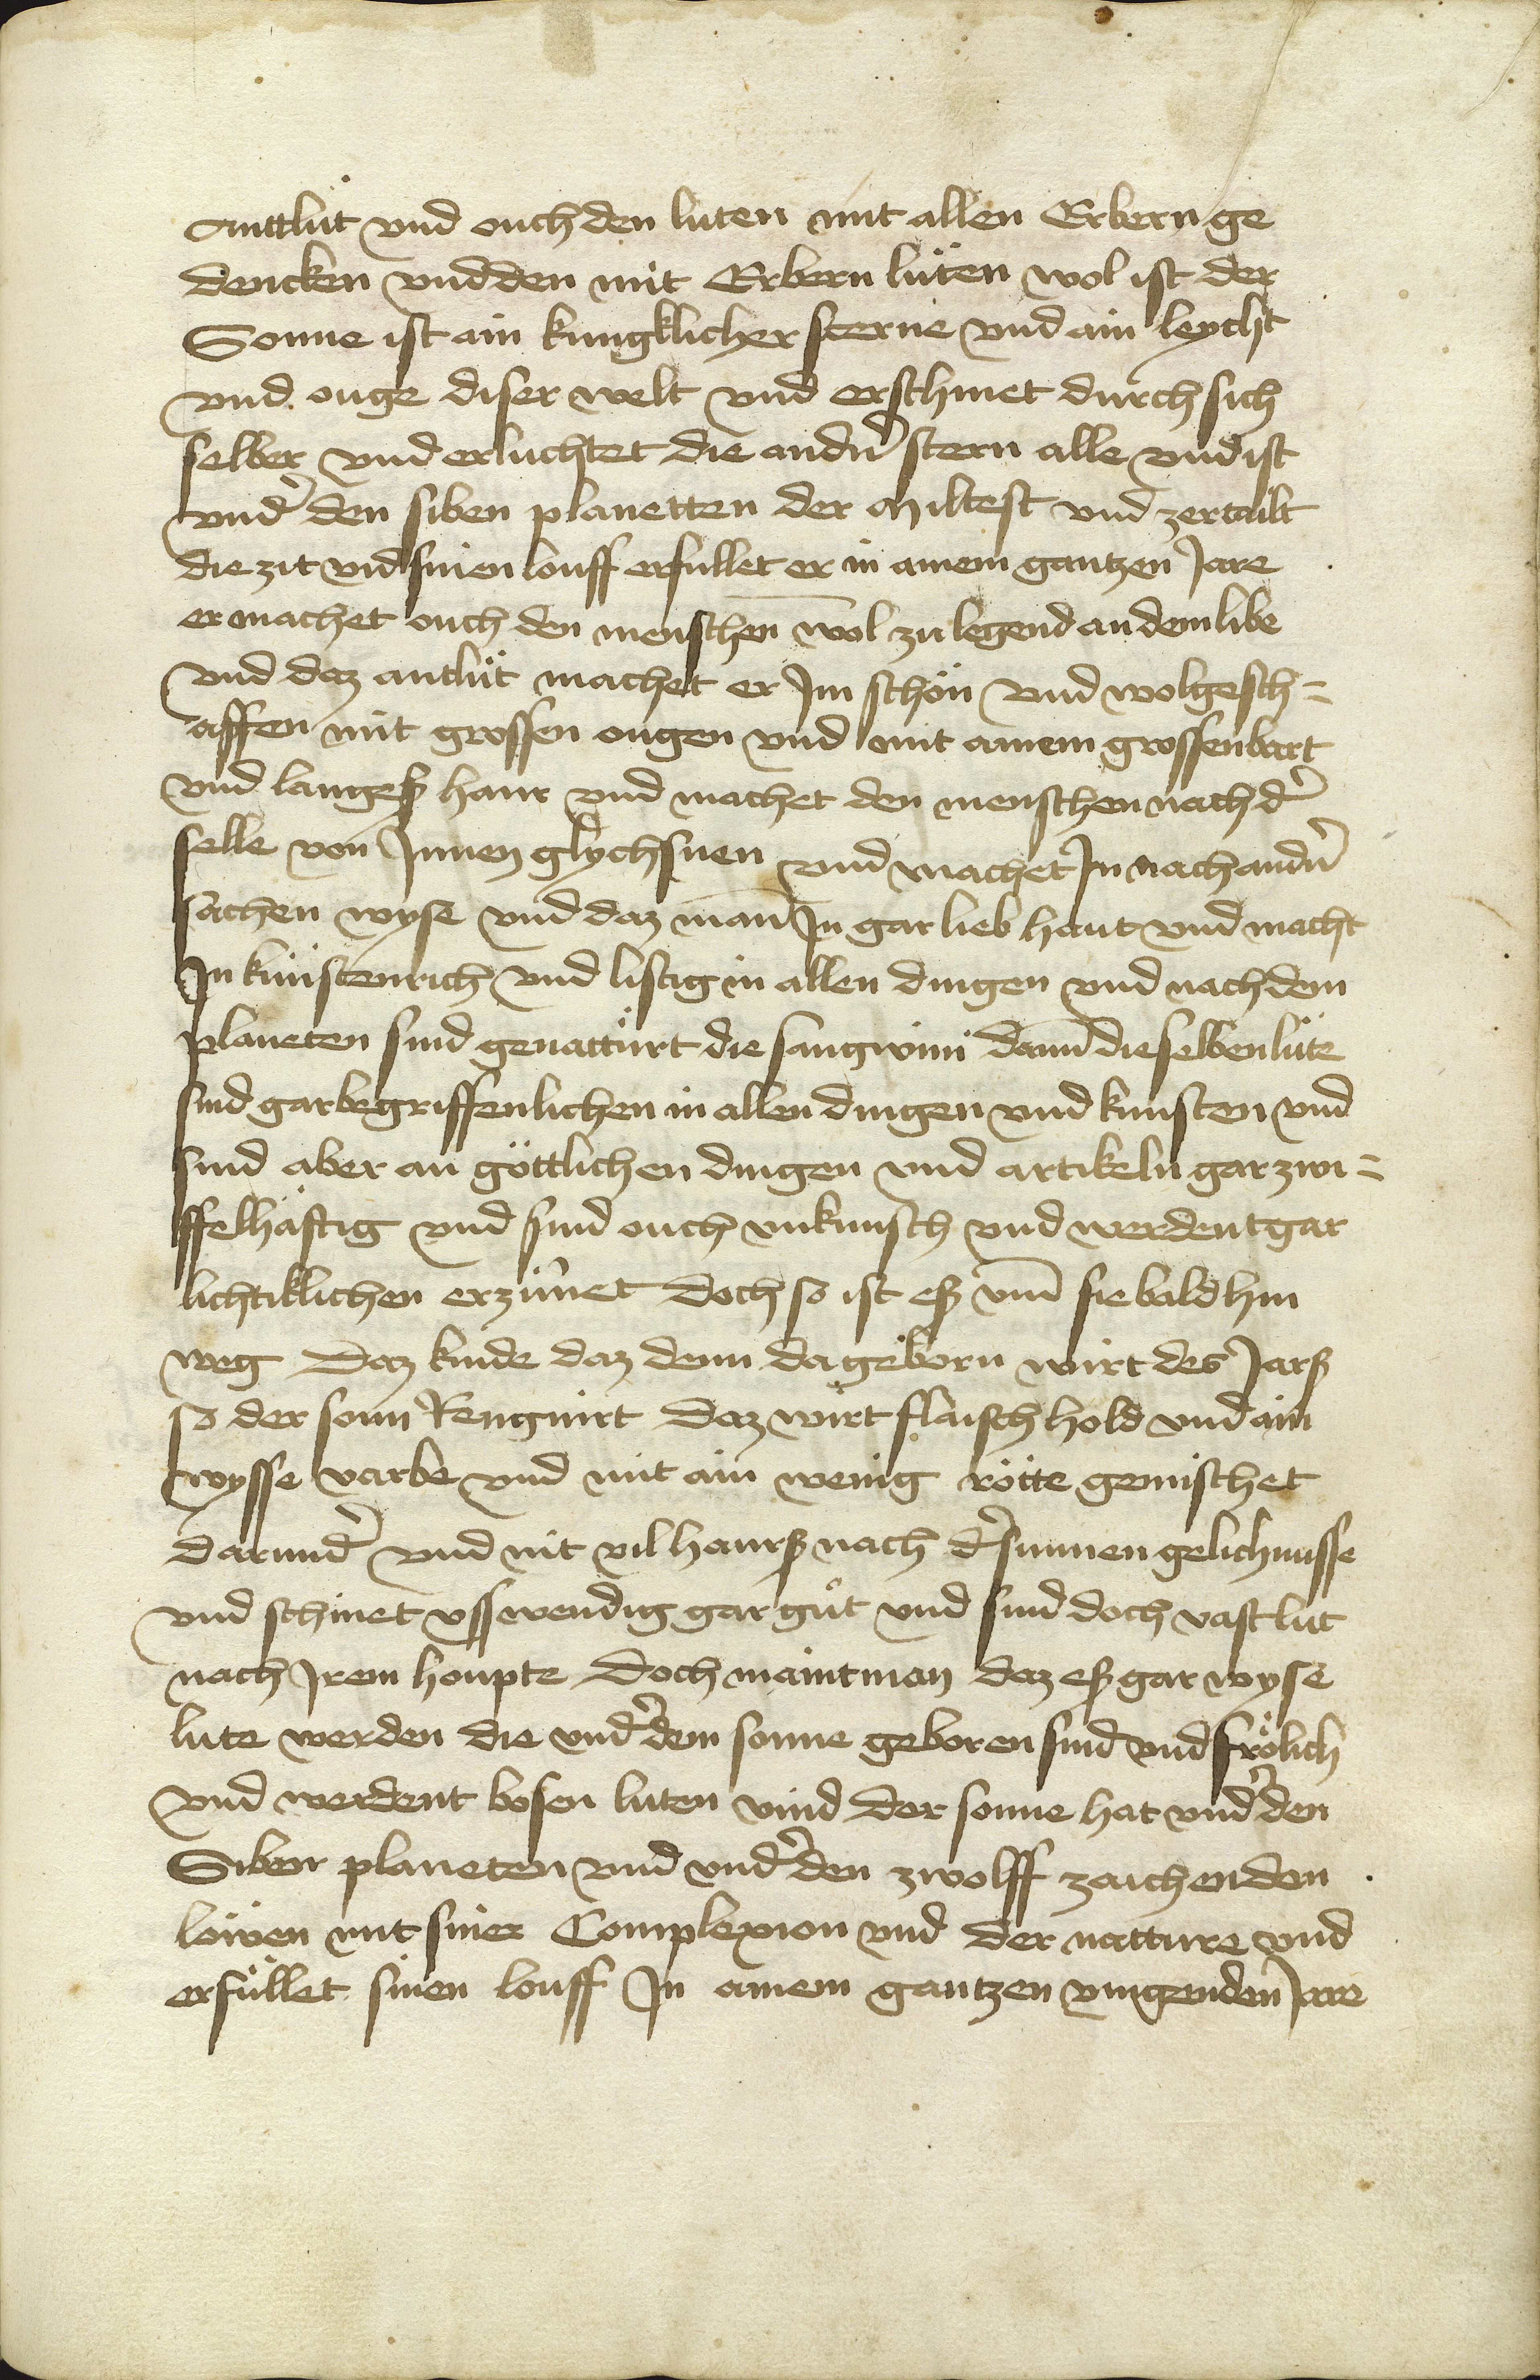 Anttlüt vnd ouch den luten mit allen Erbern ge
dencken vnd den mit Erbern lüten wol ist der
Sonne ist ain kungklicher sterne vnd ain leycht
vnd ouge diser welt vnd erschinet durch sich
selber vnd erluchtet die andn̉ stern alle vnd ist
vnd̉ den siben planetten der miltest vnd zertailt
die zit vnd sinen louff erfullet er in ainem gantzen Jare
er machet ouch den menschen wol zu legend an dem libe
vnd daz antlüt machet er Jm schön vnd wolgesch=
affen mit grossen ougen vnd mit ainem grossen bart
vnd langeß haur vnd machet den menschen nach d̉
selle von Jnnen glychsnen vnd machet Jn nach andn̉
sachen wyse vnd daz man̄ Jn gar lieb haut vnd macht
Jn künstenrich vnd listig in allen dingen vnd nach dem
planeten sind genattürt die sangwini dann̄ die selben lüte
sind gar begriffenlichen in allen dingen vnd kunsten vnd
sind aber an göttlichen dingen vnd artikeln gar zwi=
ffelhäftig vnd sind ouch vnkunsch vnd werdent gar
lichtiklichen erzürnet doch so ist eß vm̄ sie bald hin
weg Daz kinde daz denn da geborn wirt des Jarß
so der sonn Rengnirt daz wirt flaisch hold vnd ain
wysse varbe vnd mit ain wenig rötte gemischet
darund̉ vnd nit vil haurß nach d̉ sunnen gelichnusse
vnd schinet vsswendig gar gůt vnd sind doch vast lut
nach Jrem houpte doch maint man daz eß gar wyse
lute werden die vnd̉ dem sonne geboren sind vnd frölich
vnd werdent bosen luten vind der sonne hat vnd̉ den
Siben planeten vnd vnd̉ den zwolff zaichen den
löwen mit siner Complexion vnd der natture vnd
erfüllet sinen louff Jn ainem gantzen vmgenden Jare